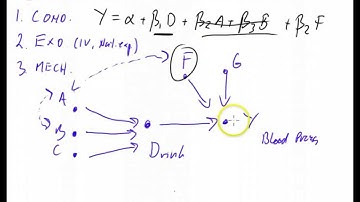 1. COND.
Y = α + β₁D + β₂A + β₃B + β₂F
2. EXO (IV, Nat. exp)
3. MECH.
F
G
A
B
C
Drink
Y
Blood Press